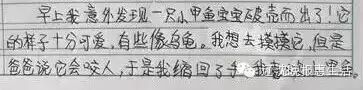 早上我意外发现一只小甲鱼宝宝破壳而出了！它
的样子十分可爱，有些像乌龟。我想去摸摸它，但是
爸爸说它会咬人，于是我缩回了手